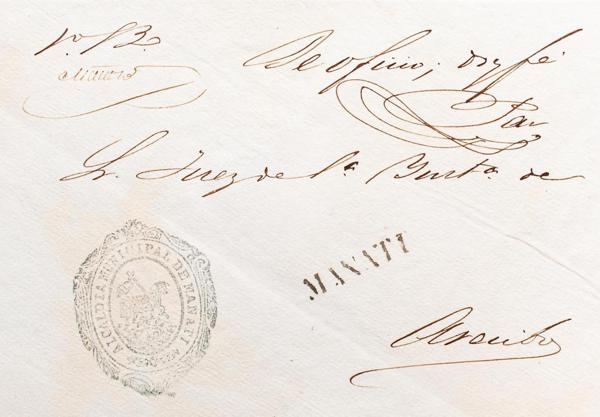 Vº Bº
De oficio; doy fé
Sr. Juez de 1ª Instª de
ALCALDIA MUNICIPAL DE MANATI
MANATI
Arecibo